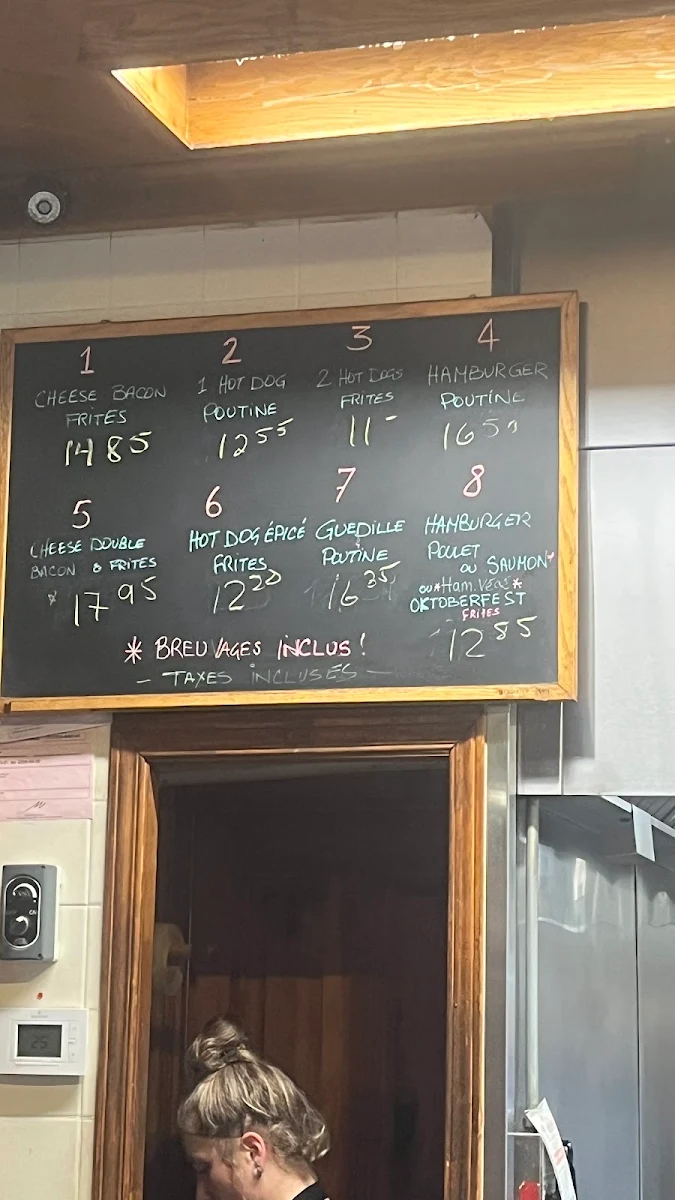 1
CHEESE BACON
FRITES
14 85
2
1 HOT DOG
POUTINE
12 55
3
2 HOT DOGS
FRITES
11 -
4
HAMBURGER
POUTINE
16 50
5
CHEESE DOUBLE
BACON & FRITES
17 95
6
HOT DOG ÉPICÉ
FRITES
12 20
7
GUEDILLE
POUTINE
16 35
8
HAMBURGER
POULET
OU SAUMON
OU *Ham. Végé*
OKTOBERFEST
FRITES
12 85
* BREUVAGES INCLUS !
- TAXES INCLUSES -
25